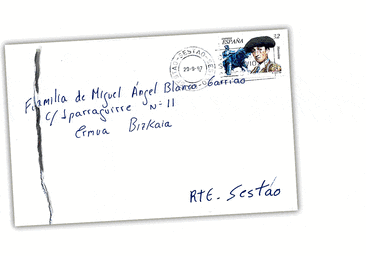 SESTAO
29-9-97
ESPAÑA
32
Familia de Miguel Ángel Blanco Garrido
C/ Iparraguirre Nº 11
Ermua Bizkaia
RTE. Sestao